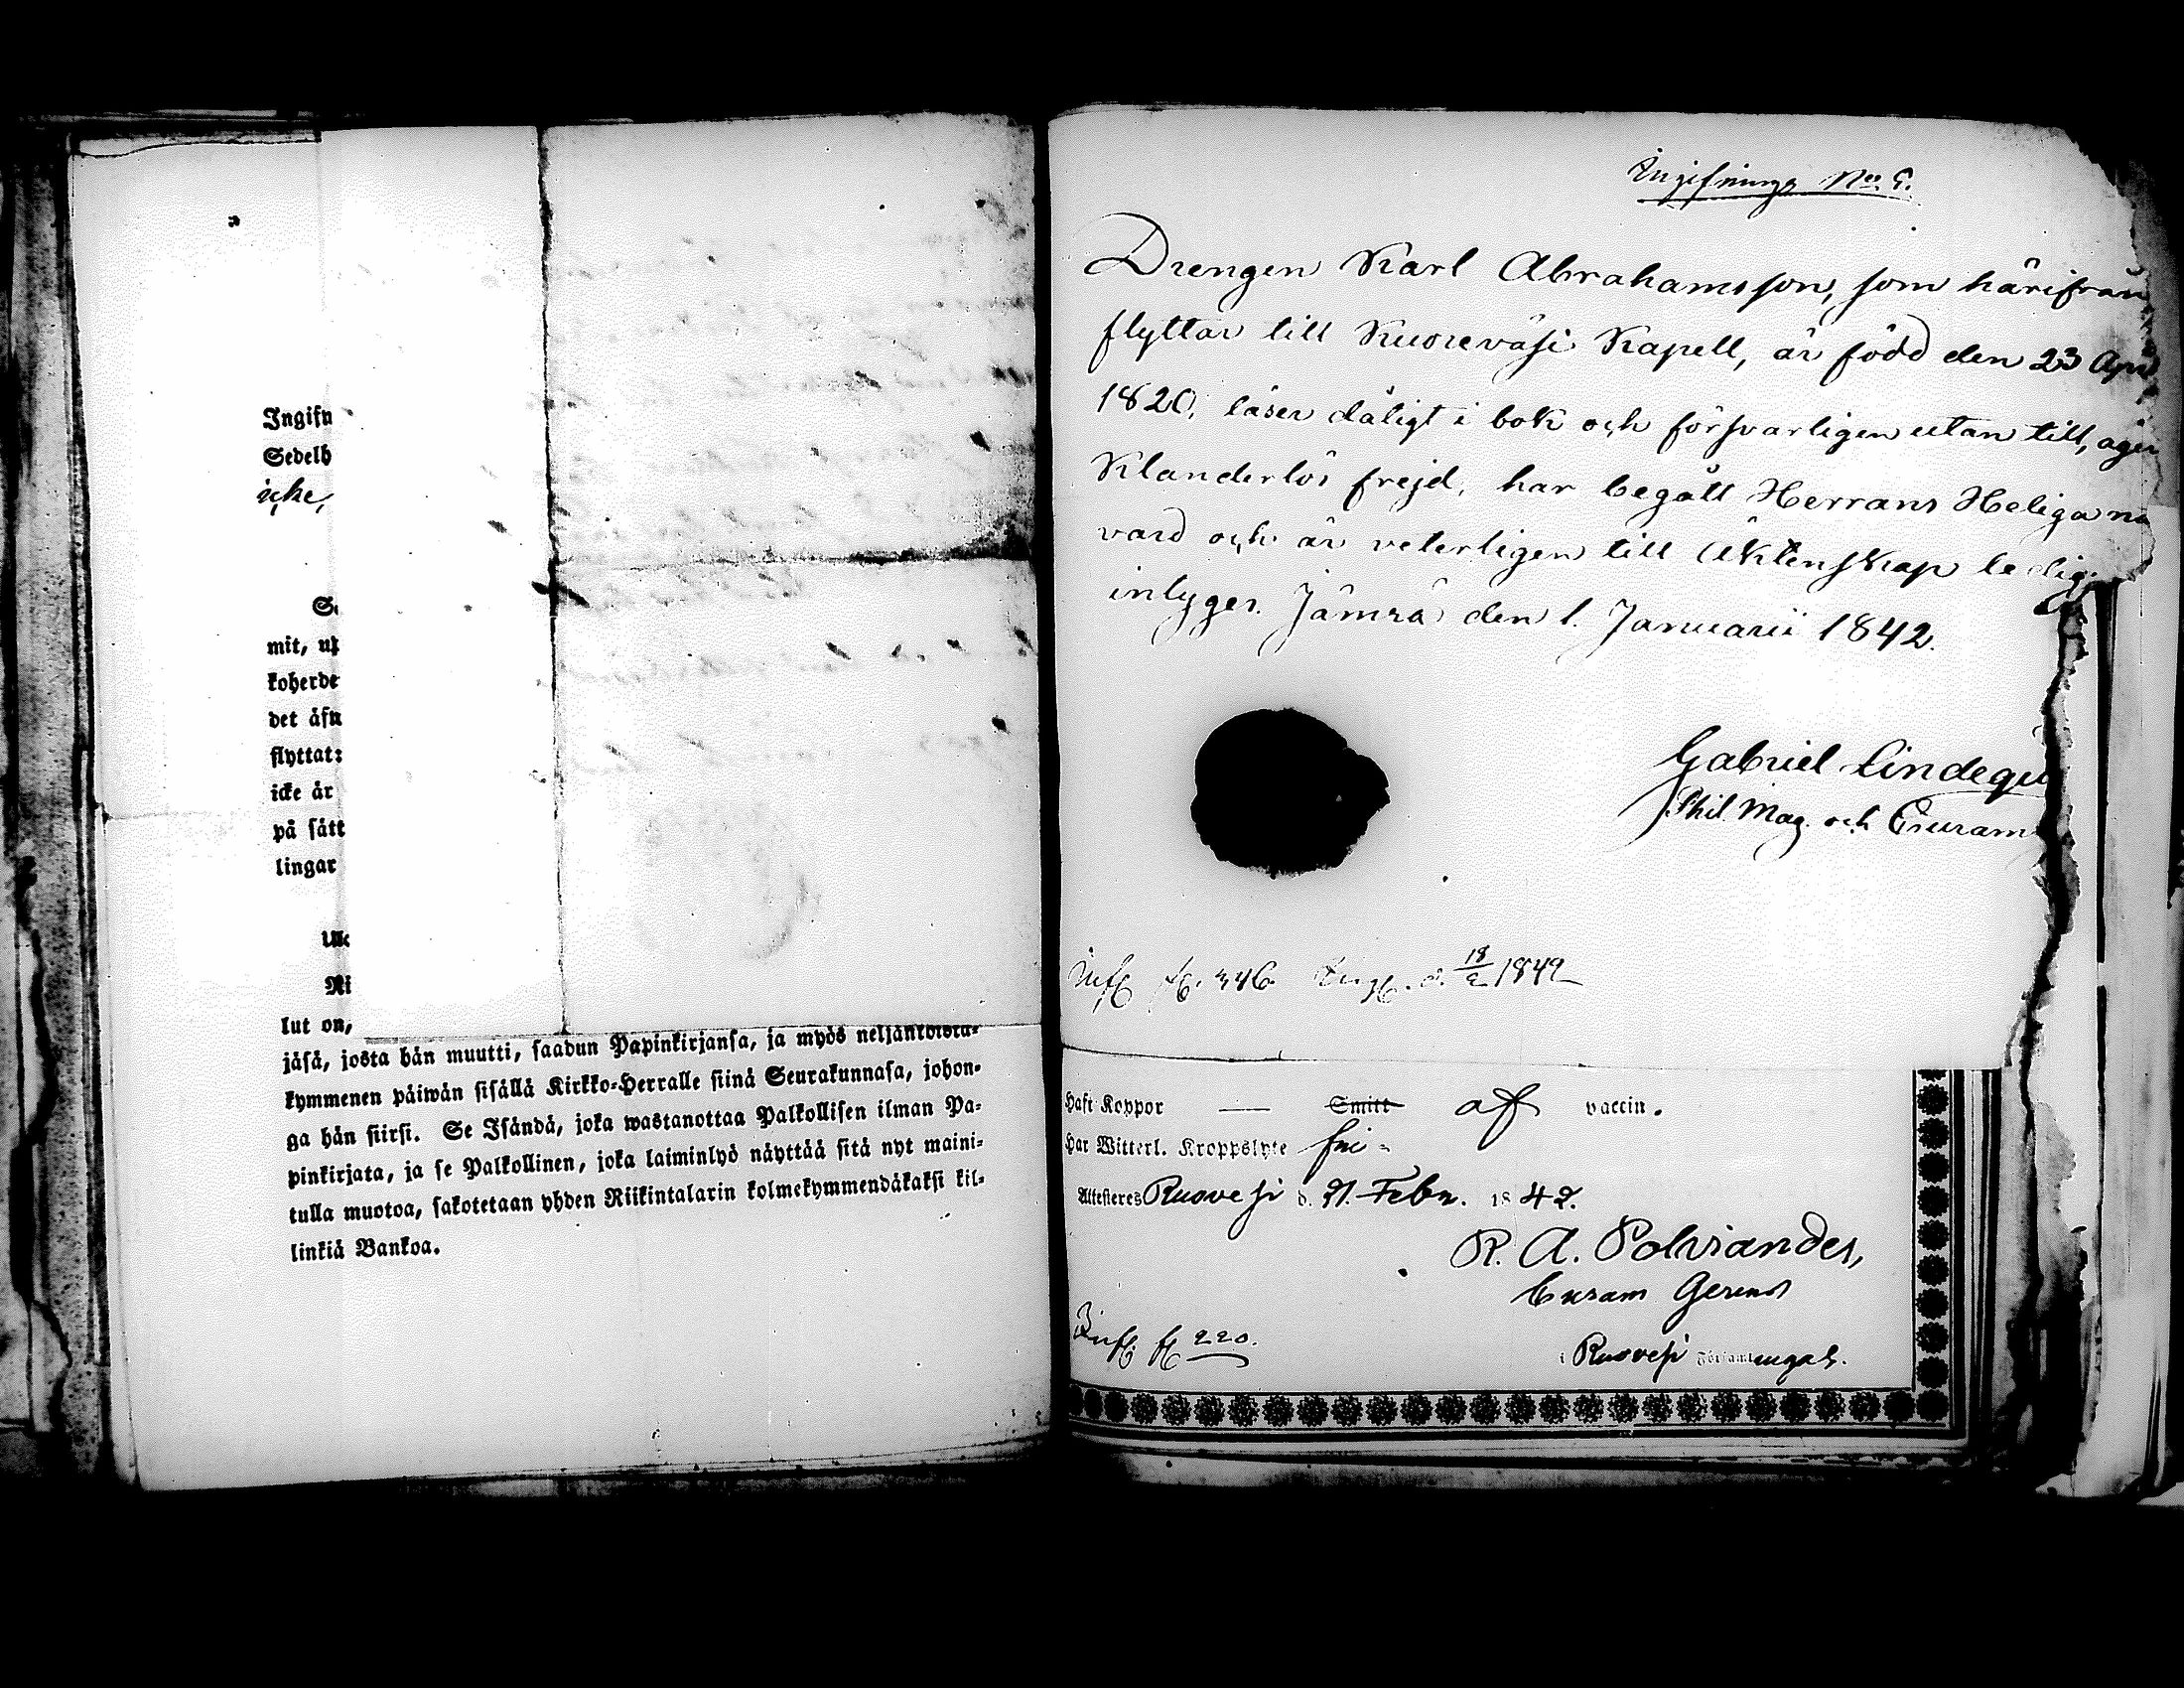 Ingifn
Sedelb
icke,
mit, ut
koherde
det äfn
flyttat:
icke är
på sätt
lingar
Ulo
Ri
lut on,
jäsä, josta hän muutti, saadun Papinkirjansa, ja myös neljäntoista-
kymmenen päiwän sisällä Kirkko-Herralle siinä Seurakunnasa, johon-
ga hän siirsi. Se Isändä, joka wastanottaa Palkollisen ilman Pa-
pinkirjata, ja se Palkollinen, joka laiminlyö näyttää sitä nyt maini-
tulla muotoa, sakotetaan yhden Riikintalarin kolmekymmendäkaksi kil-
linkiä Bankoa.
Ingifnings No.
Drengen Karl Abrahamsson, som härifrån
flyttar till Kuorevesi Kapell, är född den 23 Apr
1820, läser dåligt i bok och försvarligen utan till, äger
Klanderlös frejd, har begått Herrans Heliga na
vard och är veterligen till Äktenskap ledig
intyger. Jämsä den 1. Januarii 1842.
Gabriel Lindequ
Phil. Mag. och
346. 18/2 1842
Haft Koppor — Smitt af vaccin.
Har Witterl. Kroppslyte fri
Attesteres Ruovesi d. 21. Febr. 1842.
R. A. Polviander,
Curam Gerens
i Ruovesi Församlingah.
Infl. fl 220.